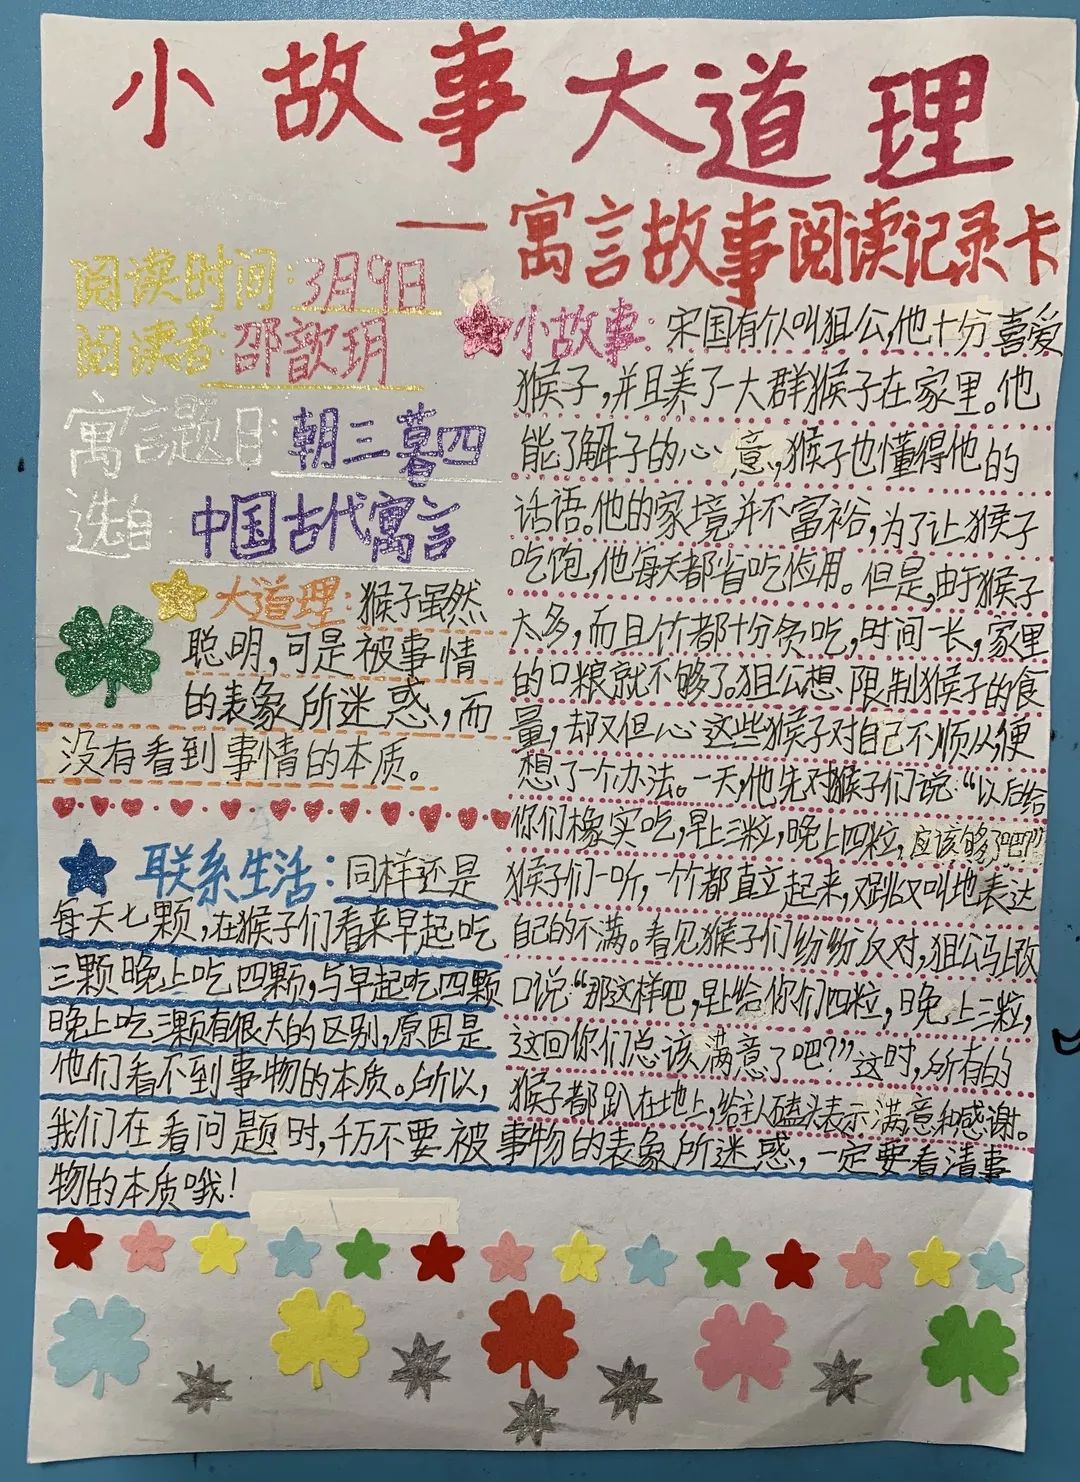 小故事大道理
一寓言故事阅读记录卡
阅读时间:3月9日
阅读者:邵歆玥
寓言题目:朝三暮四
选自:中国古代寓言
大道理:猴子虽然
聪明,可是被事情
的表象所迷惑,而
没有看到事情的本质。
小故事:宋国有个人叫狙公,他十分喜爱
猴子,并且养了一大群猴子在家里。他
能了解子的心意,猴子也懂得他的
话语。他的家境并不富裕,为了让猴子
吃饱,他每天都省吃俭用。但是,由于猴子
太多,而且个个都十分贪吃,时间一长,家里
的口粮就不够了。狙公想限制猴子的食
量,却又但心这些猴子对自己不顺从,便
想了一个办法。一天,他先对猴子们说:“以后给
你们橡实吃,早上三粒,晚上四粒,应该够了吧?”
猴子们一听,一个个都直立起来,又跳又叫地表达
自己的不满。看见猴子们纷纷反对,狙公马上改
口说:“那这样吧,早上给你们四粒,晚上三粒,
这回你们总该满意了吧?”这时,所有的
猴子都趴在地上,给主人磕头表示满意和感谢。
联系生活:同样还是
每天七颗,在猴子们看来早起吃
三颗晚上吃四颗,与早起吃四颗
晚上吃三颗有很大的区别,原因是
他们看不到事物的本质。所以,
我们在看问题时,千万不要被事物的表象所迷惑,一定要看清事
物的本质哦!